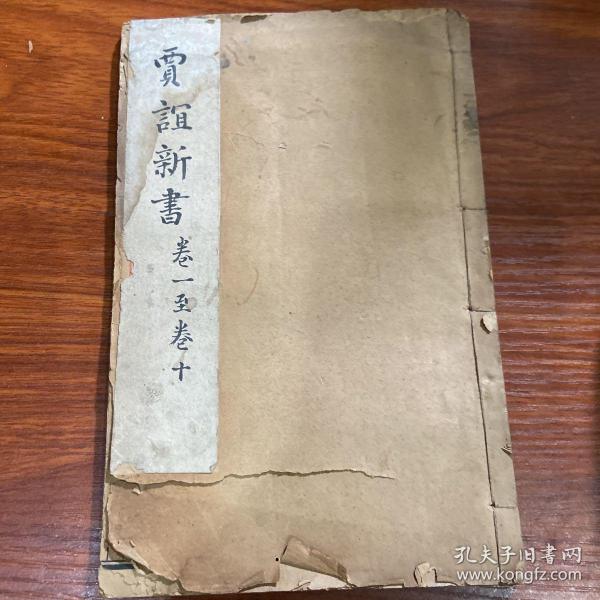 賈誼新書 卷一至卷十
孔夫子旧書网
www.kongfz.com